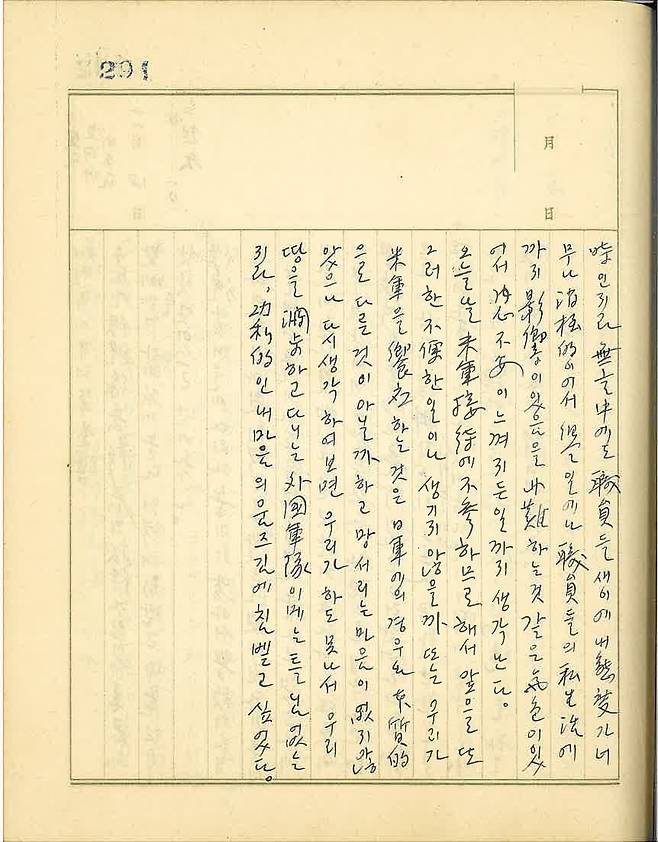 291
月
日
時인지라 無言中에도 職員들 새이에 내 態度가 너
무나 消極的이어서 옳은 일에나 職員들의 私生活에
까지 影響이 있음을 나 難하는 것 같은 気色이 있
어서 不安이 느껴지든 일까지 생각난다。
오늘날 米軍 接待에 不參하므로 해서 앞으로 또
그러한 不便한 일이나 생기지 않을까 또는 우리가
米軍을 饗応하는 것은 日軍에의 경우와 本質的
으로 다른 것이 아닐까 하고 망서리는 마음이 없지 않
았으나 다시 생각하여 보면 우리가 하도 못나서 우리
땅을 하고 다니는 外國軍隊이메는 틀님없는
지라, 功利的인 내 마음의 움즈김에 침 뱉고 싶었다。